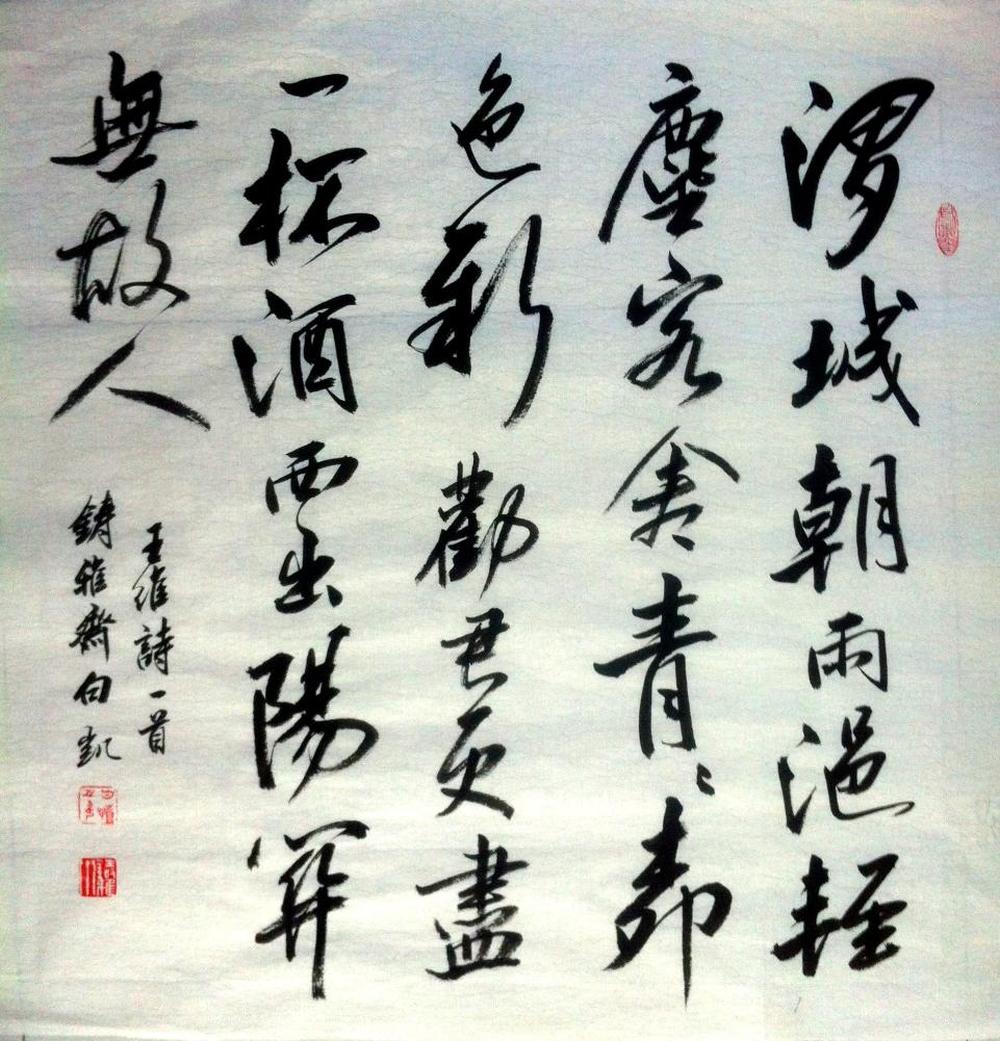 渭城朝雨浥輕
塵客舍青々柳
色新勸君更盡
一杯酒西出陽關
無故人
王維詩一首
鑄雅齋白凱